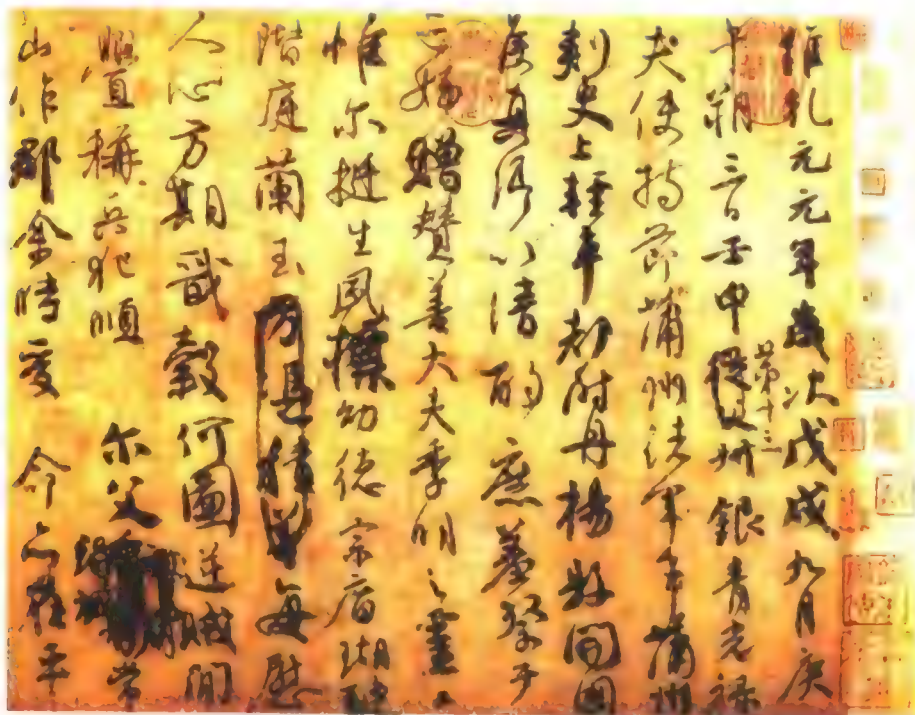 維乾元元年歲次戊戌九月庚
午朔三日壬申第十三叔銀青光祿
夫使持節蒲州諸軍事蒲州
刺史上輕車都尉丹楊縣開國
侯真卿以清酌庶羞祭于
亡姪贈贊善大夫季明之靈
惟尔挺生夙標幼德宗廟瑚璉
階庭蘭玉每慰
人心方期戩穀何圖逆賊間
釁稱兵犯順尔父常
山作郡余時受命亦在平